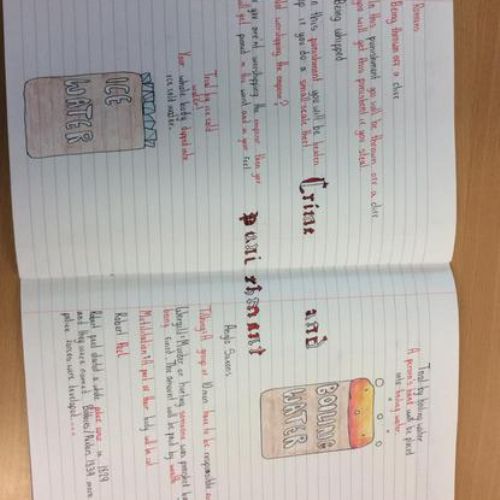 Romans
Being thrown off a cliff
In this punishment you will be thrown off a cliff.
you will get this punishment if you steal.
Being whipped
In this punishment you will be beaten
up if you do a small scale theft
Not worshipping the emperor?
you aren't worshipping the emperor then you
will get pinned in the wrist and in your feet.
Trial by ice cold
water:
Your whole body dipped into
ice cold water.
ICE
WATER
Crime and
punishment
Trial by boiling water
A person's hand will be placed
into boiling water.
BOILING
WATER
Anglo Saxons
A group of 10 men have to be responsible
Wergild: Murder or hurting someone was punished by
being fined. The amount will be paid by wealth
Mutilation: A part of their body will be cut
Robert Peel
Robert peel started a wide police force in 1829
and they were named
police forces were developed....